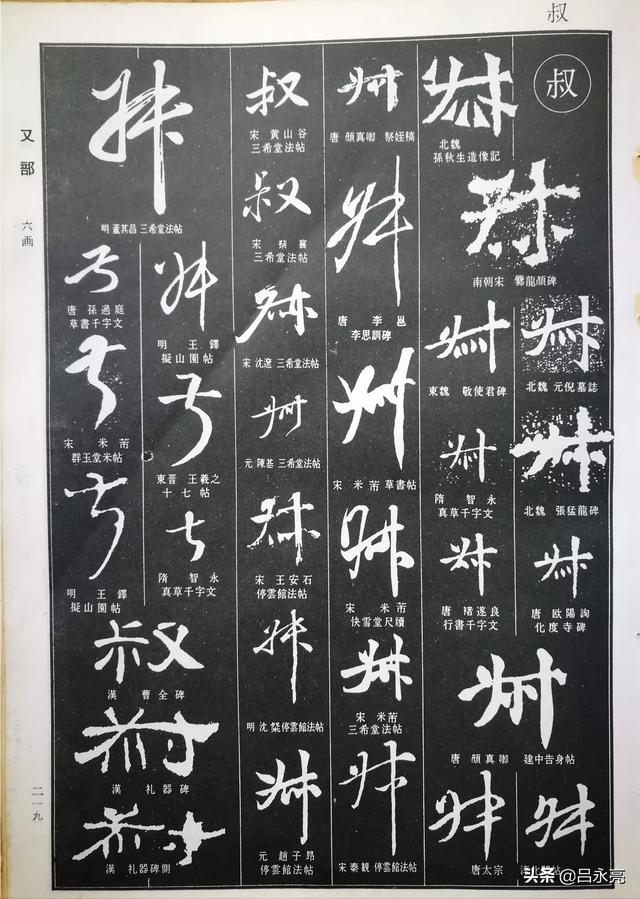 叔
又部
六画
二一九
叔
北魏
孫秋生造像記
南朝宋 爨龍顏碑
北魏 元倪墓誌
北魏 張猛龍碑
唐 欧陽詢
化度寺碑
東魏 敬使君碑
隋 智永
真草千字文
唐 褚遂良
行書千字文
唐 顔真卿 建中告身帖
唐太宗
唐 顔真卿 祭姪稿
唐 李邕
李思訓碑
宋 米芾 草書帖
宋 米芾
快雪堂尺牘
宋 米芾
三希堂法帖
宋秦観 停雲館法帖
宋 黄山谷
三希堂法帖
宋 蔡襄
三希堂法帖
宋 沈遼 三希堂法帖
元 陳基 三希堂法帖
宋 王安石
停雲館法帖
明 沈粲 停雲館法帖
元 趙子昂
停雲館法帖
明 董其昌 三希堂法帖
明 王鐸
擬山園帖
東晋 王羲之
十七帖
隋 智永
真草千字文
唐 孫過庭
草書千字文
宋 米芾
群玉堂米帖
明 王鐸
擬山園帖
漢 曹全碑
漢 礼器碑
漢 礼器碑側
头条 @吕永亮